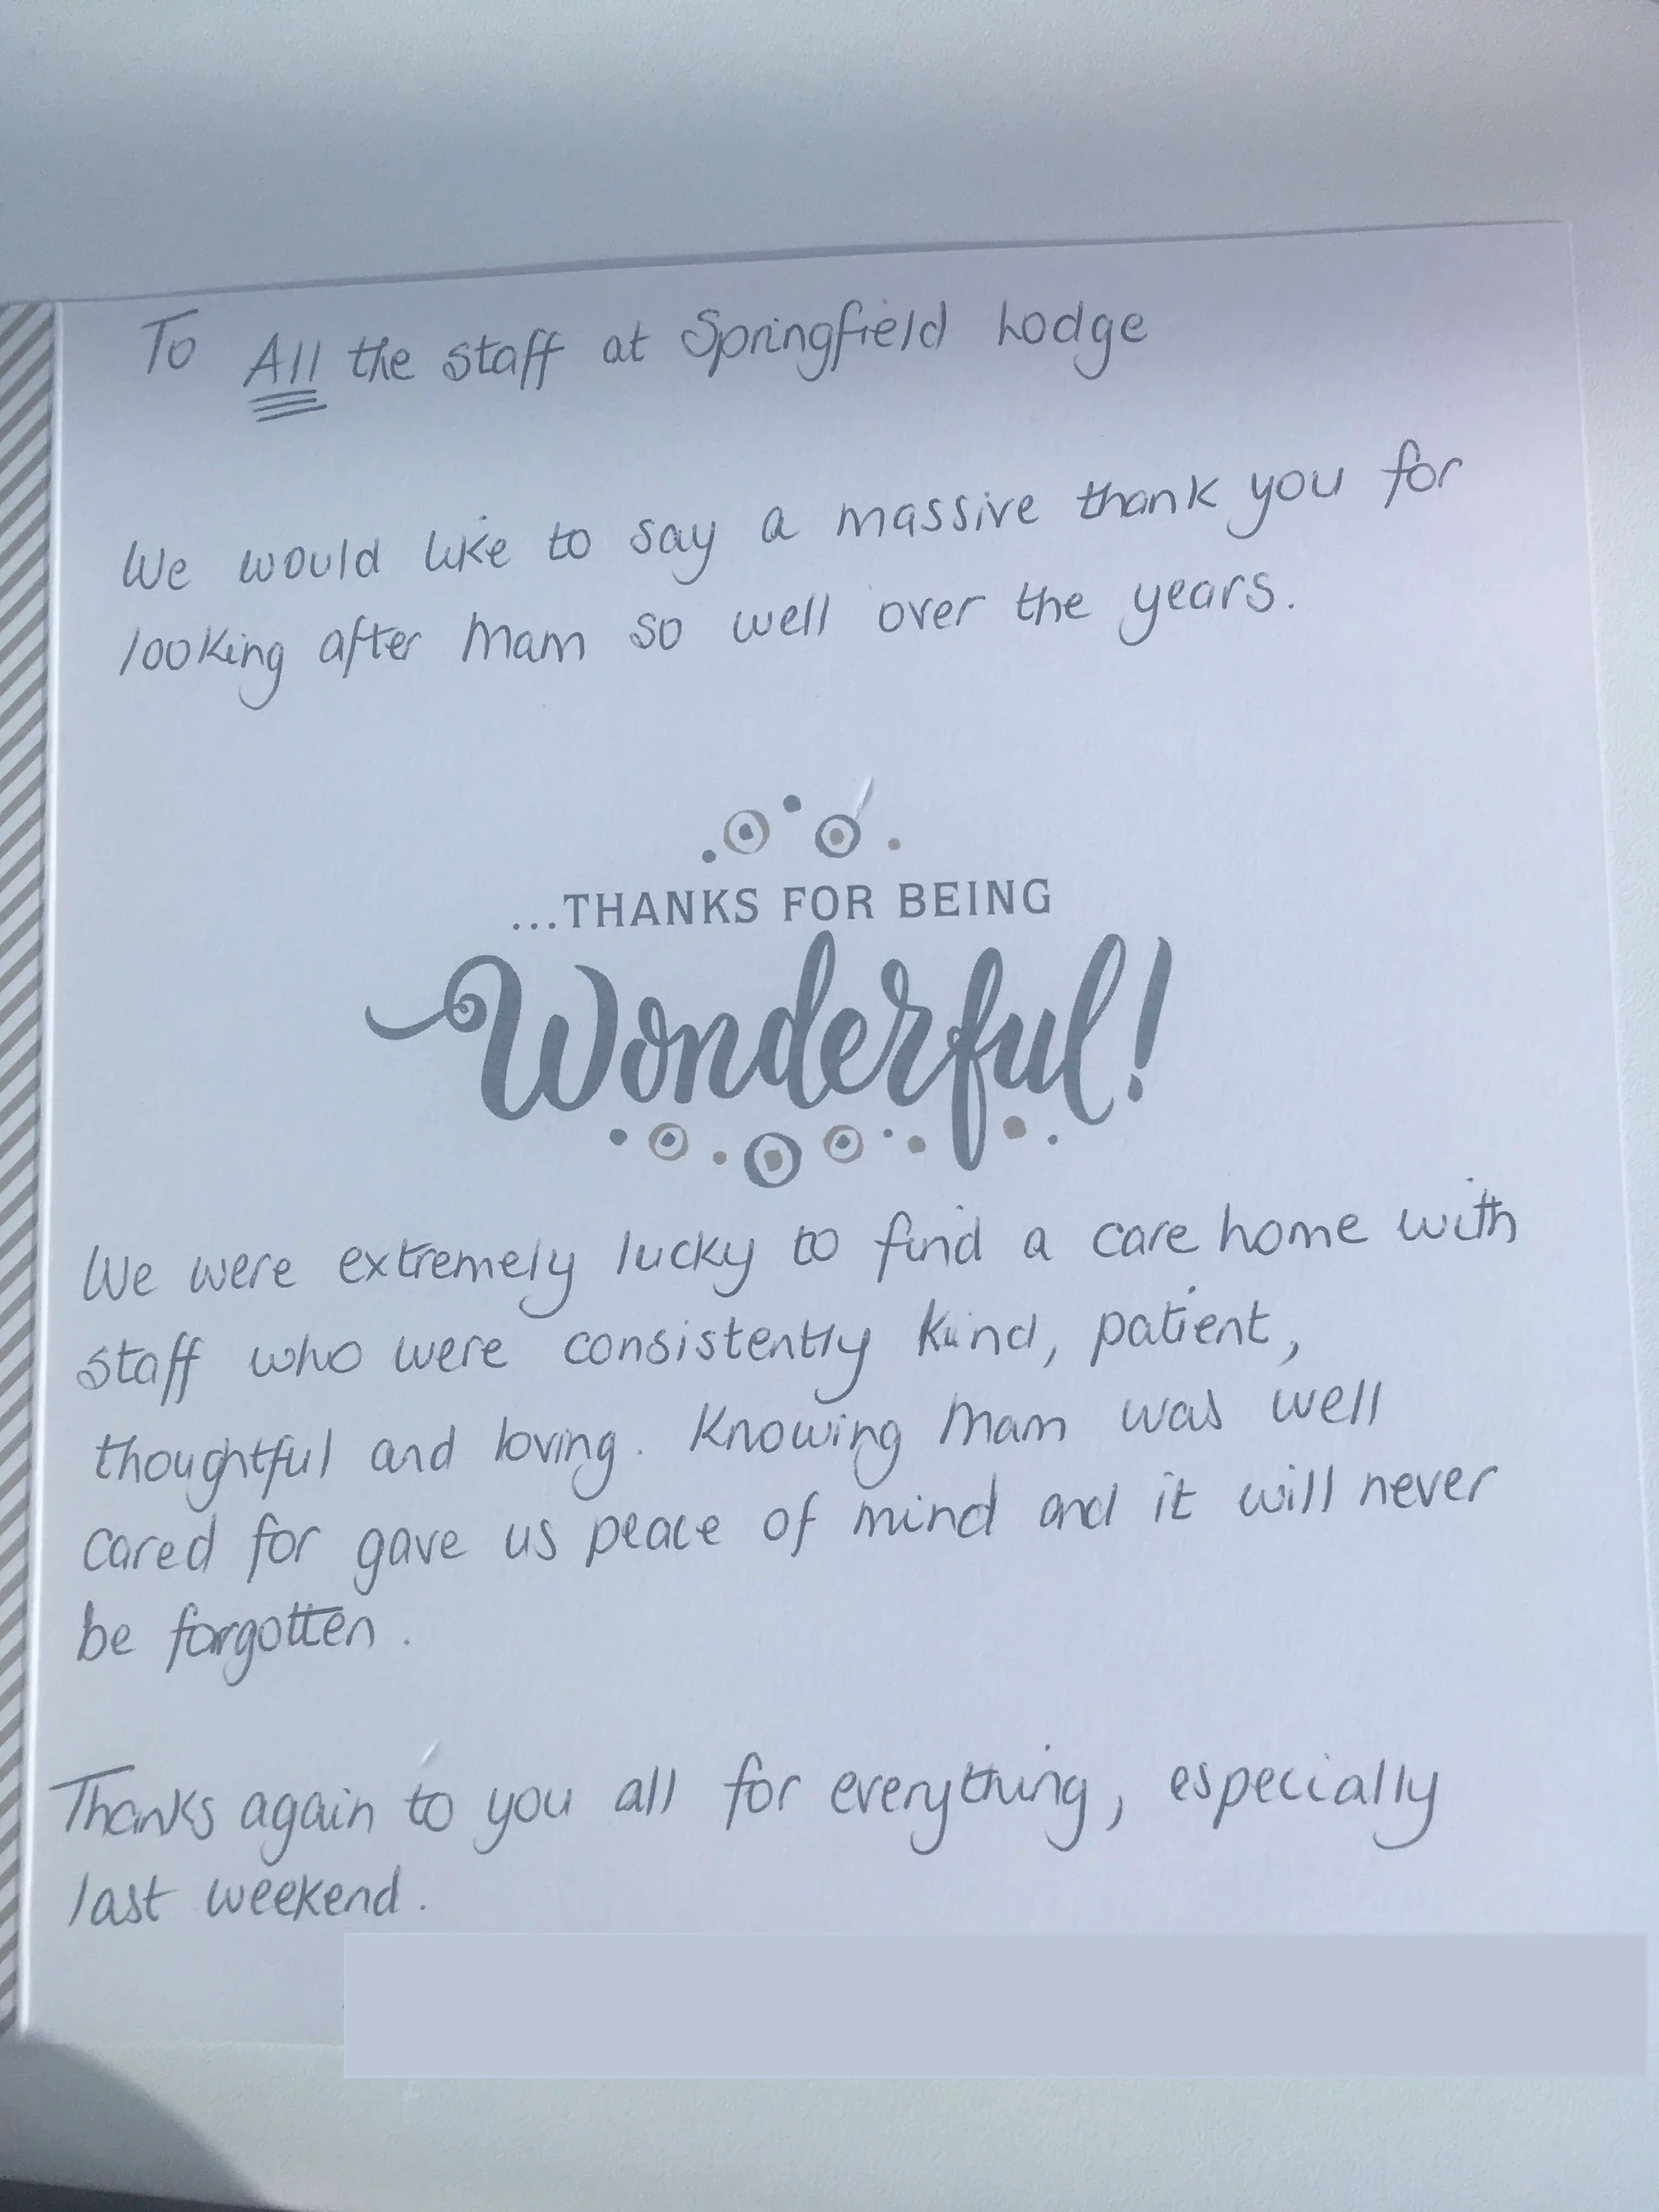 To All the staff at Springfield Lodge
We would like to say a massive thank you for
looking after Mam so well over the years.
...THANKS FOR BEING
Wonderful!
We were extremely lucky to find a care home with
staff who were consistently kind, patient,
thoughtful and loving. Knowing Mam was well
cared for gave us peace of mind and it will never
be forgotten.
Thanks again to you all for everything, especially
last weekend.